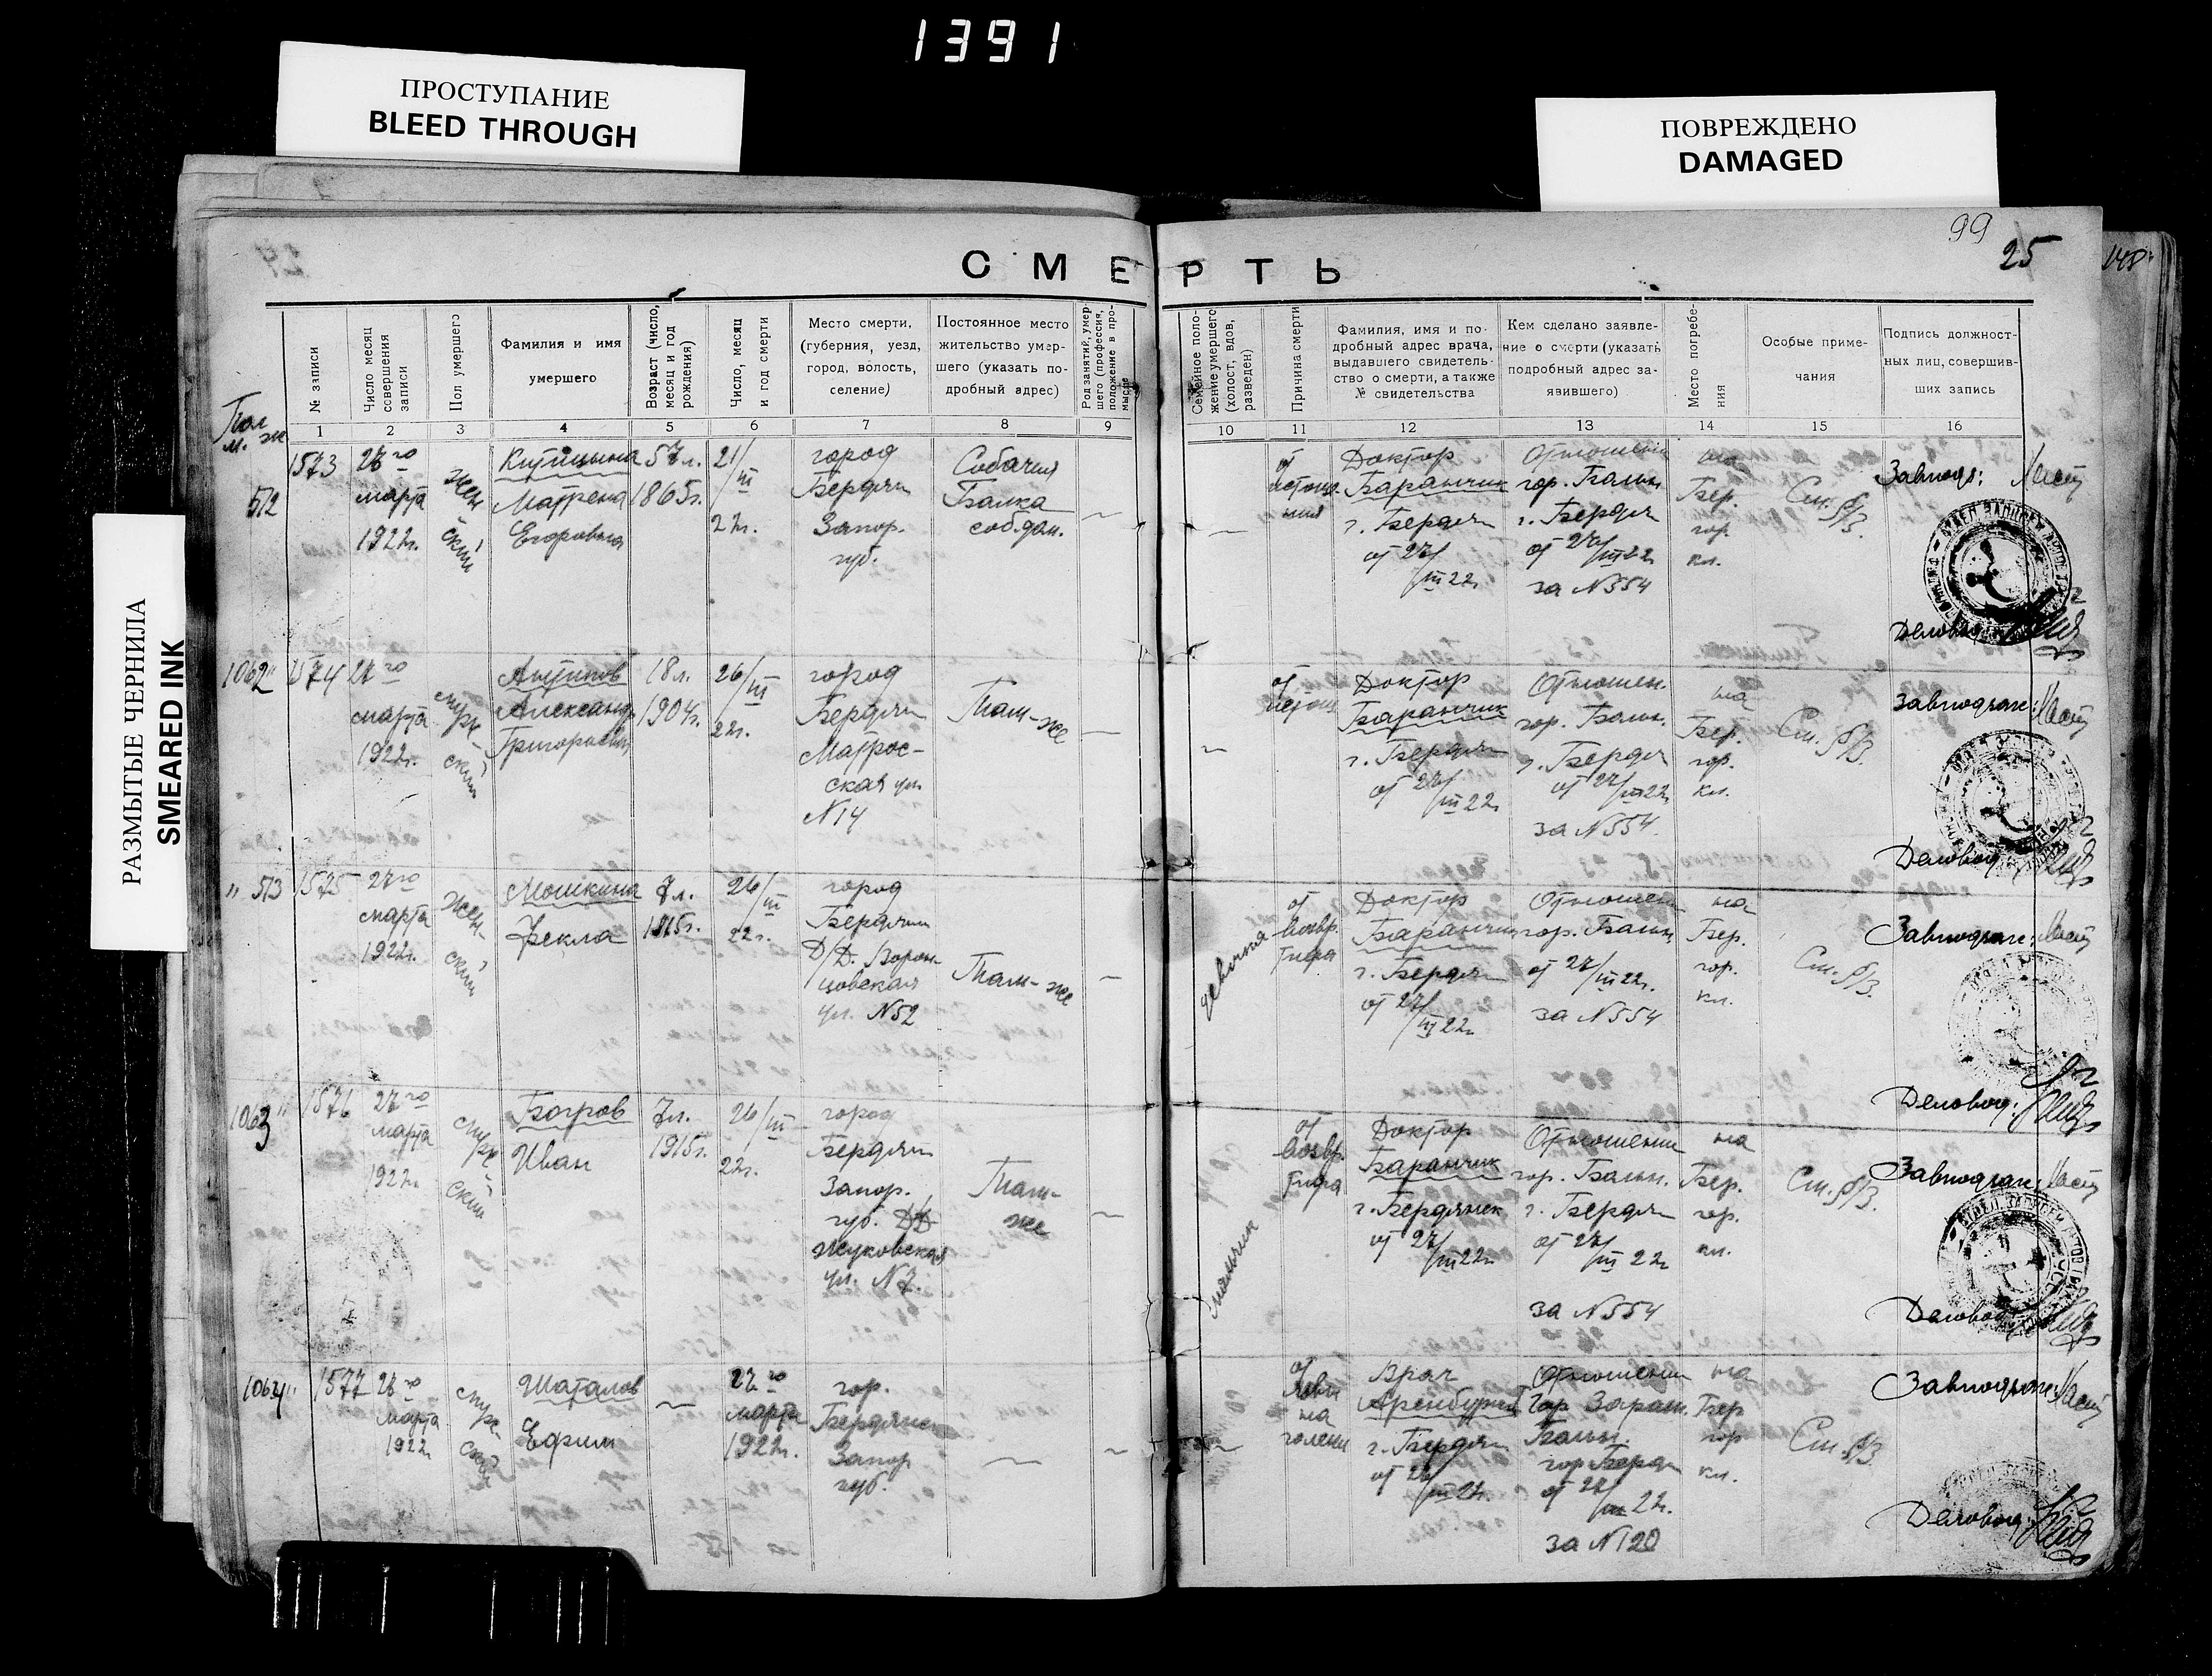 1391
ПРОСТУПАНИЕ
BLEED THROUGH
ПОВРЕЖДЕНО
DAMAGED
РАЗМЫТЫЕ ЧЕРНИЛА
SMEARED INK
99
25
148
СМЕРТЬ
Пол
м. ж
№ записи
Число месяц совершения записи
Пол умершего
Фамилия и имя умершего
Возраст (число, месяц и год рождения)
Число, месяц и год смерти
Место смерти, (губерния, уезд, город, волость, селение)
Постоянное место жительство умершего (указать подробный адрес)
Род занятий, умершего (профессия, положение в промысле
Семейное положение умершего (холост, вдов, разведен)
Причина смерти
Фамилия, имя и подробный адрес врача, выдавшего свидетельство о смерти, а также № свидетельства
Кем сделано заявление о смерти (указать подробный адрес заявившего)
Место погребения
Особые примечания
Подпись должностных лиц, совершивших запись
1 2 3 4 5 6 7 8 9 10 11 12 13 14 15 16
512
1573
27го марта 1922г.
женский
Матрена Егоровна
57л. 1865г.
21/III 22г.
город Бердян Запор. губ.
Собачия Балка соб.дом.
от истощения
Доктор Баранчик г. Бердян от 27/III 22г.
Отношени гор. Больн. г. Бердян от 27/III 22г. за N554
на Бер. гор. кл.
См. б/з.
Завподз:
Деловод
1062"
1574
27го марта 1922г.
мужский
Антипов Александр Григорьевич
18л. 1904г.
26/III 22г.
город Бердян Матросская ул. N14
Там-же
от истощ
Доктор Баранчик г. Бердян от 27/III 22г.
Отношен. гор. Больн. г. Бердян от 27/III 22г. за N554.
на Бер. гор. кл.
См. б/з.
Завподзаг:
Деловод
" 513
1575
27го марта 1922г.
женский
Мошкина Фекла
7л. 1915г.
26/III 22г.
город Бердян Д/Д. Воронцовская ул. N52
Там-же
девочка
от возвр. тифа
Доктор Баранчик г. Бердян от 27/III 22г.
Отношен гор. Больн от 27/III 22г. за N554
на Бер. гор. кл.
См. б/з.
Завподзаг:
Деловод:
1063"
1576
27го марта 1922г.
мужский
Богров Иван
7л. 1915г.
26/III 22г.
город Бердян Запор. губ. Д/Д Жуковская ул. N7.
Там-же
мальчик
от возвр. тифа
Доктор Баранчик г. Бердянск от 27/III 22г.
Отношении гор. Больн. г. Бердян от 27/III 22г за N554
на Бер. гор. кл.
См. б/з.
Завподзаг:
Деловод
1064"
1577
27го марта 1922г
Шаталов Ефим
27го марта 1922г.
гор. Бердянск Запор губ.
на голени
Врач г. Бердян от 27/III 22г.
Отношении Гор Зараз. Больн. гор Бердян от 27/III 22г. за N120
на Бер гор кл.
См. б/з.
Завподзаг:
Деловод: